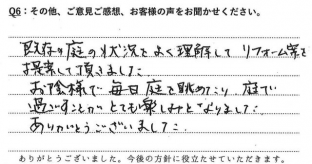 Q6：その他、ご意見ご感想、お客様の声をお聞かせください。
既存の庭の状況をよく理解して リフォーム案を
提案して頂きました
お陰様で毎日庭を眺めたり 庭で
過ごすことがとても楽しみとなりました。
ありがとうございました。
ありがとうございました。今後の方針に役立たせていただきます。